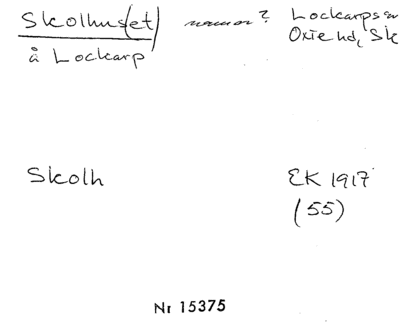 Skolhus(et) namn? Lockarps sn
å Lockarp Oxie hd, Sk
Skolh EK 1917
(55)
Nr 15375